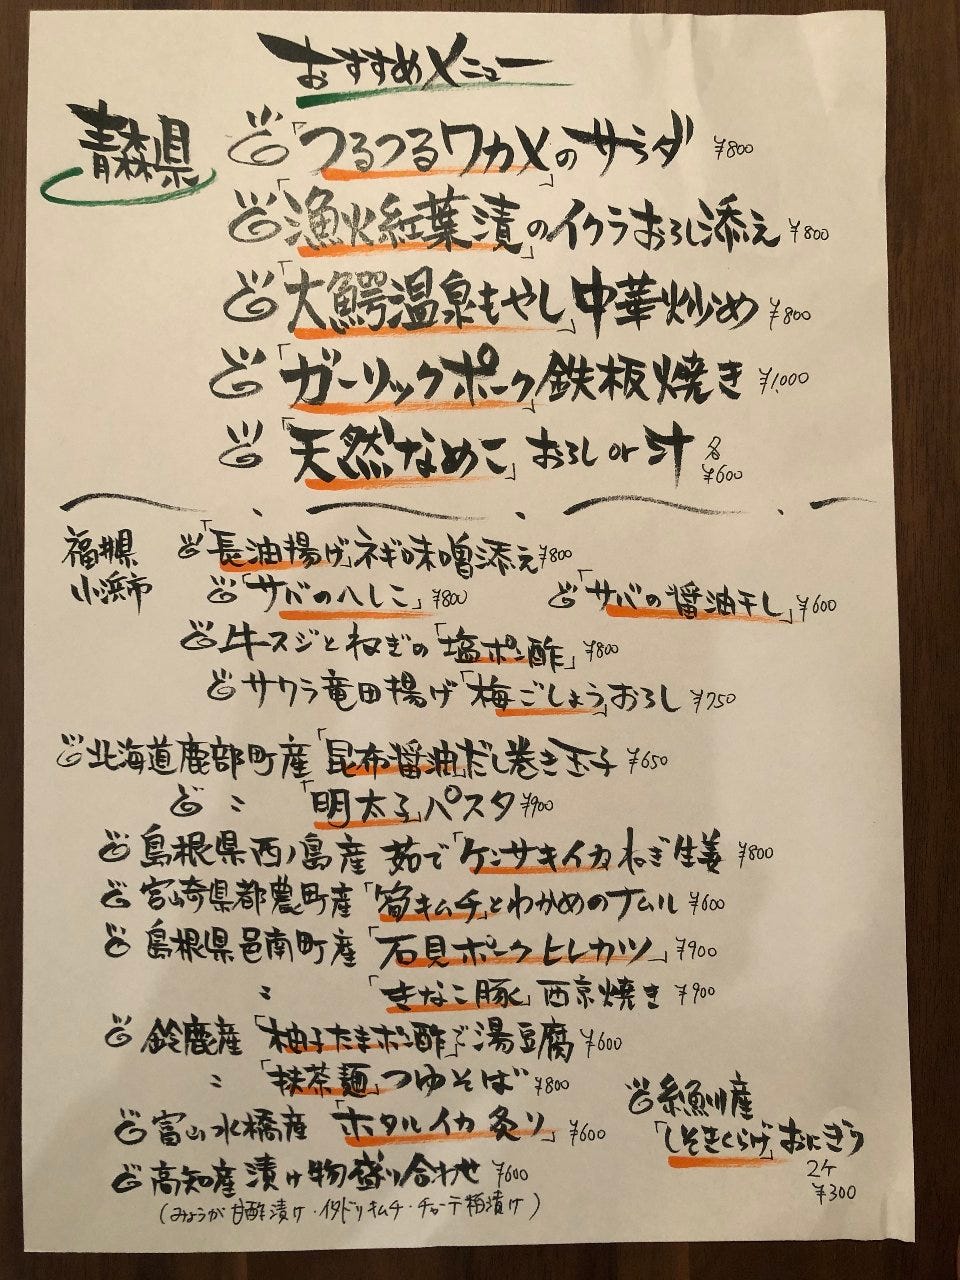 おすすめメニュー
青森県
「つるつるワカメ」のサラダ ¥800
「漁火紅葉漬」のイクラおろし添え ¥800
「大鰐温泉もやし」中華炒め ¥800
「ガーリックポーク」鉄板焼き ¥1,000
「天然なめこ」おろし or 汁 各 ¥600
福井県
小浜市
「長油揚げ」ネギ味噌添え ¥800
「サバのへしこ」 ¥800 「サバの醤油干し」 ¥600
牛スジとねぎの「塩ポン酢」 ¥800
サワラ竜田揚げ「梅ごしょう」おろし ¥750
北海道鹿部町産「昆布醤油」だし巻き玉子 ¥650
〃 「明太子」パスタ ¥900
島根県西ノ島産 茹で「ケンサキイカ」ねぎ生姜 ¥800
宮崎県都農町産「筍キムチ」とわかめのナムル ¥600
島根県邑南町産「石見ポークヒレカツ」 ¥900
〃 「きなこ豚」西京焼き ¥900
鈴鹿産「柚子たまポン酢」で湯豆腐 ¥600
〃 「抹茶麺」つゆそば ¥800
富山水橋産「ホタルイカ炙り」 ¥600
高知産 漬け物盛り合わせ ¥600
(みょうが甘酢漬け・イタドリキムチ・チャーテ粕漬け)
糸魚川産
「しそきくらげ」おにぎり
2ケ
¥300